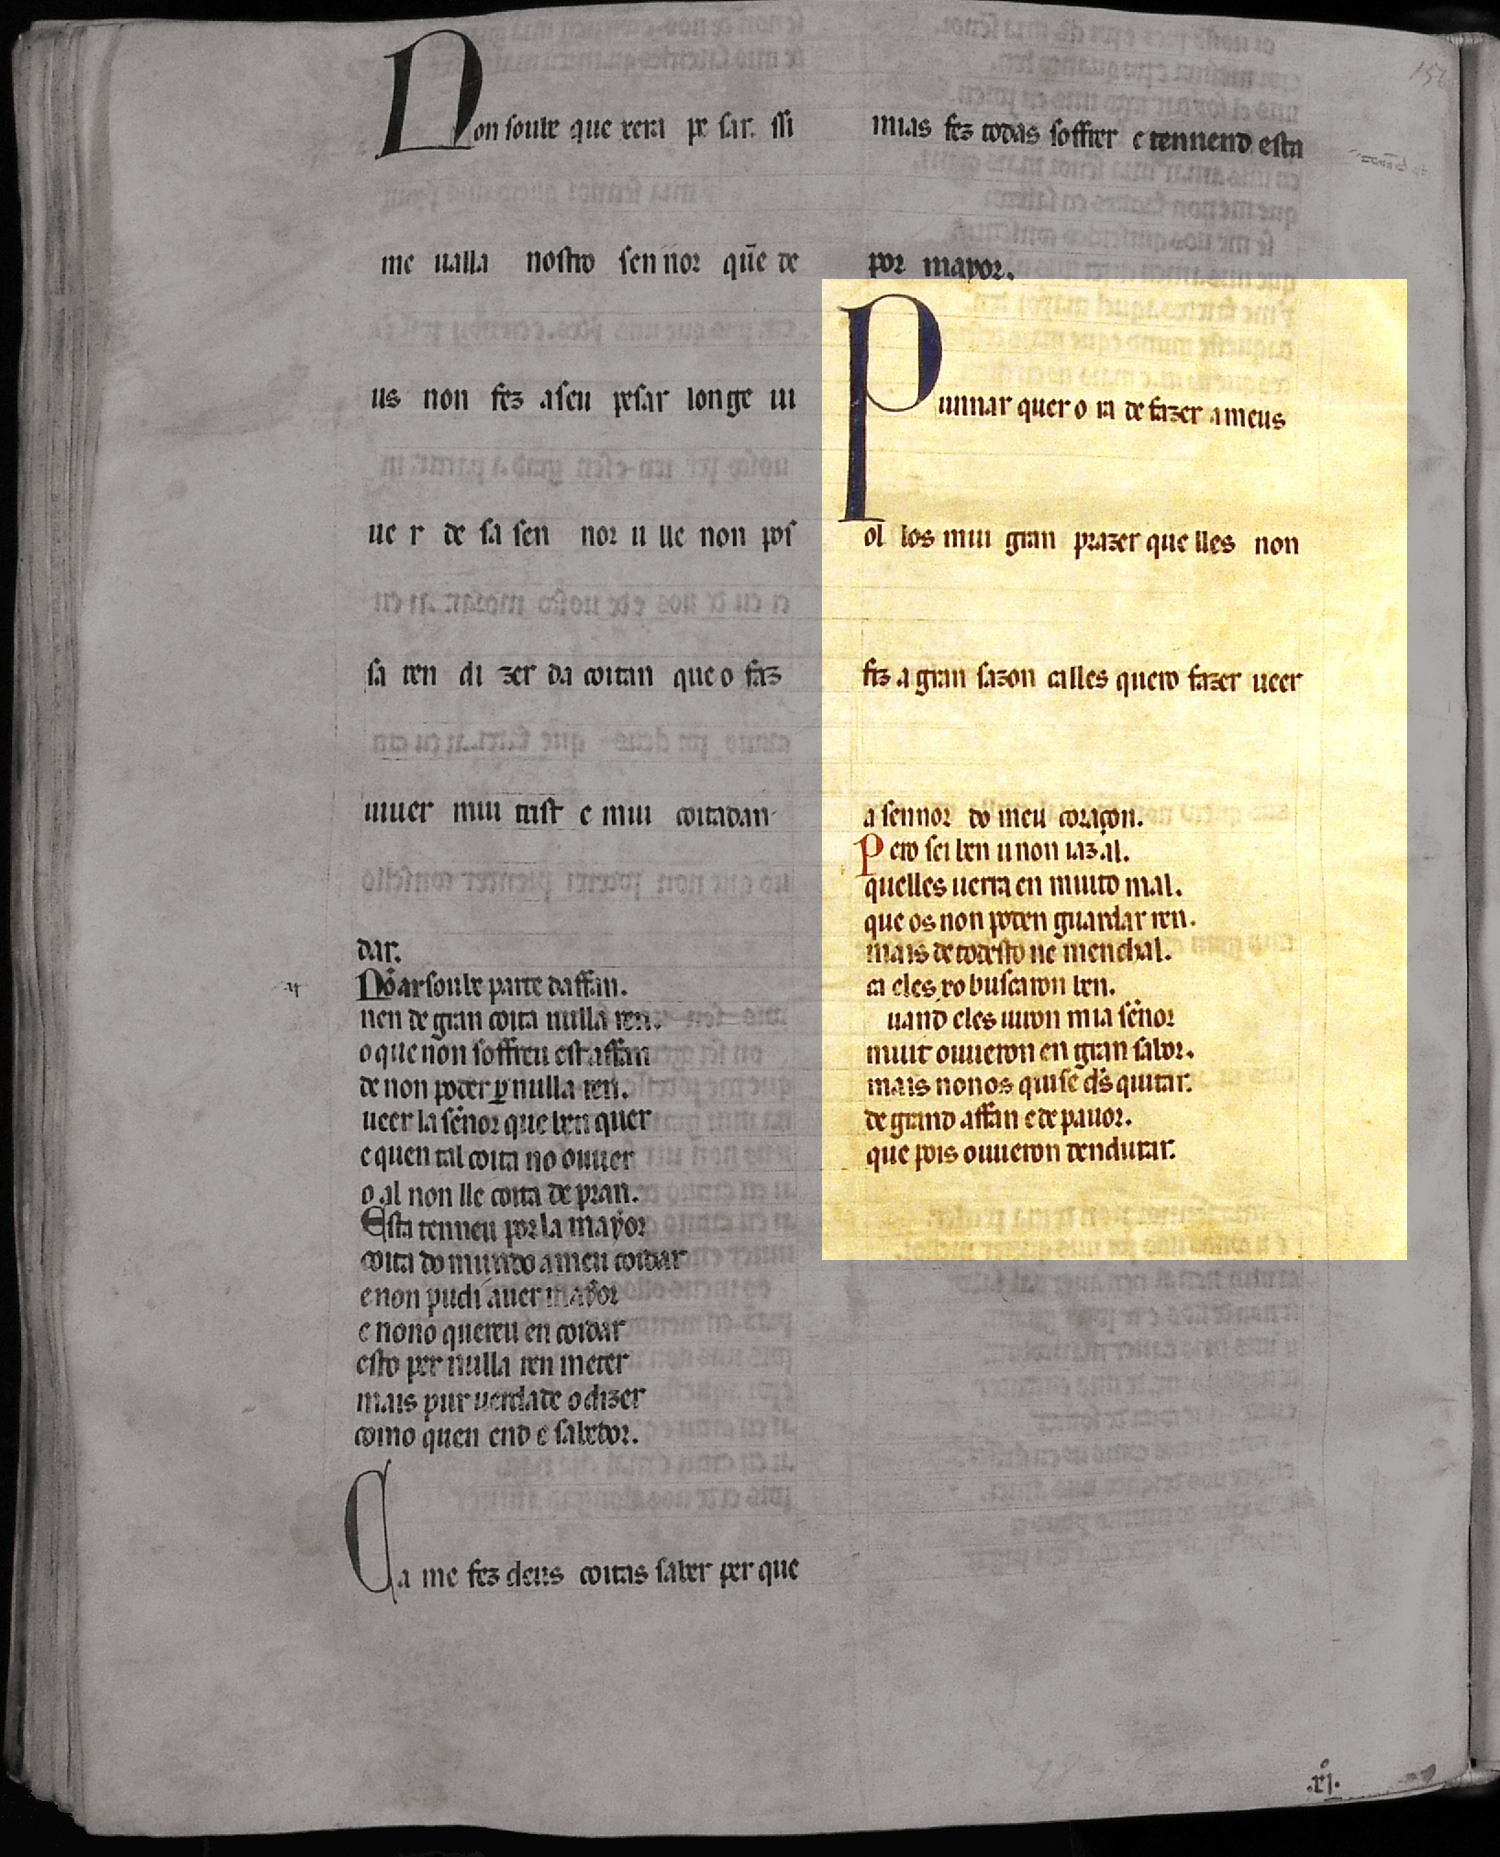 Non soube que xera pesar. ssi
me ualla nostro sennor que͂ de
us non fez aseu pesar longe ui
ue r de sa sen nor u lle non pos
sa ren di zer da coitan que o faz
uiuer mui trist e mui coitadan
dar.
Nõ ar soube parte daffan.
nen de gran coita nulla ren.
o que non soffreu est affan
de non poder ꝑ nulla ren.
ueer la sẽnor que ben quer
e quen tal coita no ouuer
o al non lle coita de pran.
Esta tenneu por la mayor
coita do mundo a meu coidar
e non pudi auer mayor
e nono quereu en coidar
esto per nulla ren meter
mais pur uerdade o dizer
como quen end e sabedor.
Ca me fez deus coitas saber per que
mias fez todas soffrer e tennend esta
por mayor.
Punnar quer o ia de fazer a meus
ol los mui gran prazer que lles non
fiz a gran sazon ca lles quero fazer ueer
a sennor do meu coraçon.
Pero sei ben u non iaz al.
quelles uerra en muito mal.
que os non poden guardar ren.
mais de todesto ne menchal.
ca eles xo buscaron ben.
uand eles uiron mia sẽnor
muit ouueron en gran sabor.
mais nonos quise d̃s quitar.
de grand affan e de pauor.
que pois ouueron dendurar.
.xj.